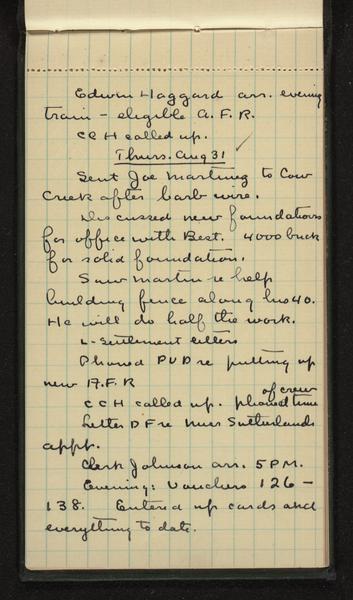 Edwin Haggard arr. evening
train - eligible A.F.R.
C C H called up.
Thurs. Aug 31 ✓
Sent Joe Martinez to Cow
Creek after barb wire.
Discussed new foundations
for office with Best. 4000 brick
for solid foundation.
Saw Martin re help
building fence along his 40.
He will do half the work.
2 - Settlement letters
Phoned PVD re putting up
new A.F.R
of crew
C C H called up. phoned time
Letter D F re Miss Sutherlands
appt.
Clerk Johnson arr. 5 P.M.
Evening: Vouchers 126 -
138. Entered up cards and
everything to date.